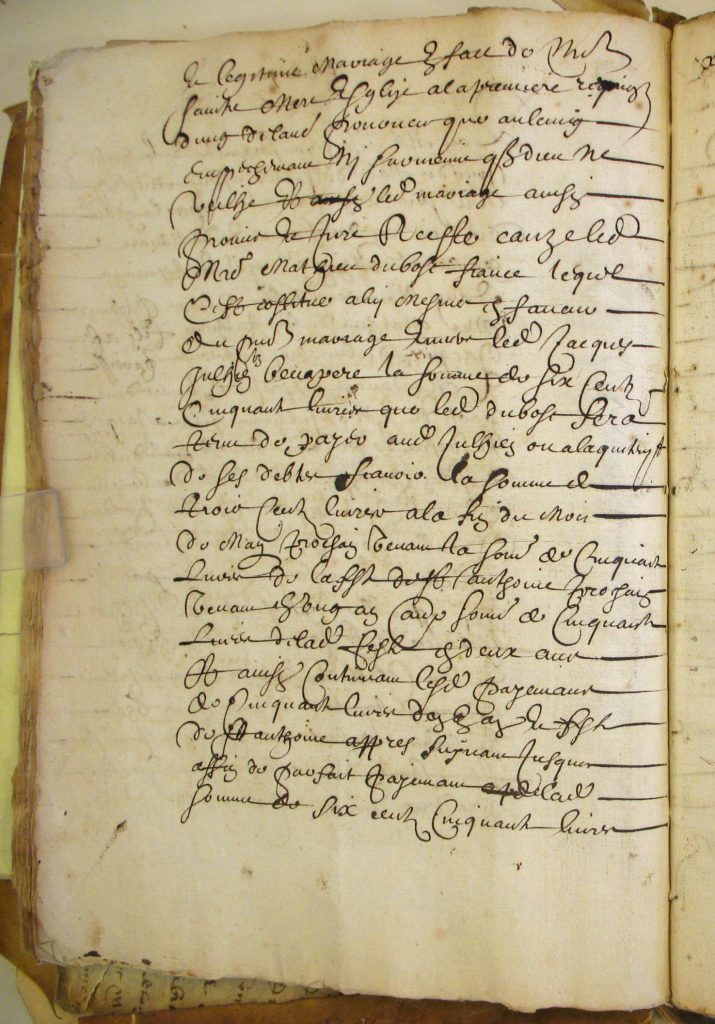 de legitime mariage en face de nre
saincte mere esglize a la premiere
dung delautre prononcer que aulcung
empechemant ny survienne que dieu ne
veulhe Et led mariage ainsin
promis de jure cauze led
Me Mathieu dubosc france lequel
c'est costitue a luy mesme en faveur
du pnt mariage envers led Jacques
Julhien beaupere la somme de six cents
Cinquante livres que led dubosc sera
tenu de payer aud Julhien ou a laquit
de ses debtes scavoir la somme de
trois cents livres a la fin du mois
de may prochain venant la somme de Cinquante
livres de la feste de St anthoine prochain
venant en ung an somme de Cinquante
livres de lad feste en deux ans
Et ainsin Continuant lesd payemans
de Cinquante livres dan en an de feste
de St anthoine appres suivant jusques
a fin de parfait payemant de lad
somme de six cents Cinquante livres